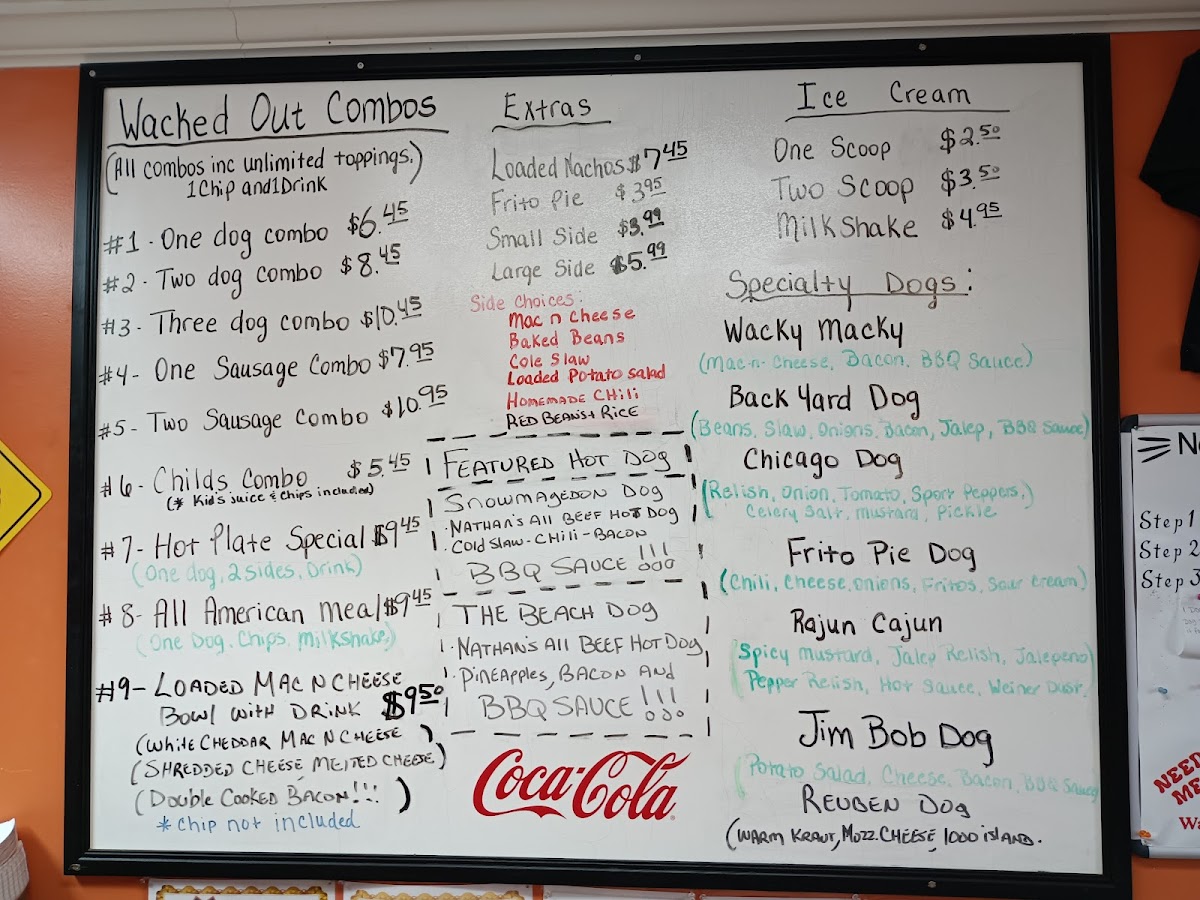 Wacked Out Combos
(All combos inc unlimited toppings.)
1Chip and 1Drink
#1 - One dog combo $6.45
#2 - Two dog combo $8.45
#3 - Three dog combo $10.45
#4 - One Sausage Combo $7.95
#5 - Two Sausage Combo $10.95
#6 - Childs Combo $5.45
(* Kid's juice & chips included)
#7 - Hot Plate Special $9.45
(One dog, 2 sides, Drink)
#8 - All American Meal $9.45
(One Dog, Chips, Milkshake)
#9 - Loaded Mac N Cheese
Bowl with Drink $9.50
(White Cheddar Mac N Cheese)
(Shredded Cheese Melted Cheese)
(Double Cooked Bacon!!!)
* Chip not included
Extras
Loaded Nachos $7.45
Frito Pie $3.95
Small Side $3.99
Large Side $5.99
Side Choices:
Mac n Cheese
Baked Beans
Cole Slaw
Loaded Potato Salad
Homemade Chili
Red Beans + Rice
Featured Hot Dog
Snowmagedon Dog
·Nathan's All Beef Hot Dog
·Cold Slaw - Chili - Bacon
BBQ Sauce!!!
The Beach Dog
·Nathan's All Beef Hot Dog
·Pineapples, Bacon and
BBQ Sauce!!!
Coca-Cola
Ice Cream
One Scoop $2.50
Two Scoop $3.50
MilkShake $4.95
Specialty Dogs:
Wacky Macky
(Mac-n-Cheese, Bacon, BBQ Sauce)
Back Yard Dog
(Beans, Slaw, Onions, Bacon, Jalep, BBQ Sauce)
Chicago Dog
(Relish, Onion, Tomato, Sport Peppers,)
Celery Salt, Mustard, Pickle
Frito Pie Dog
(Chili, Cheese, onions, Fritos, Sour Cream)
Rajun Cajun
Spicy Mustard, Jalep Relish, Jalepeno
Pepper Relish, Hot Sauce, Weiner Dust.
Jim Bob Dog
(Potato Salad, Cheese, Bacon, BBQ Sauce
Reuben Dog
(Warm Kraut, Mozz. Cheese, 1000 island.
Step 1
Step 2
Step 3